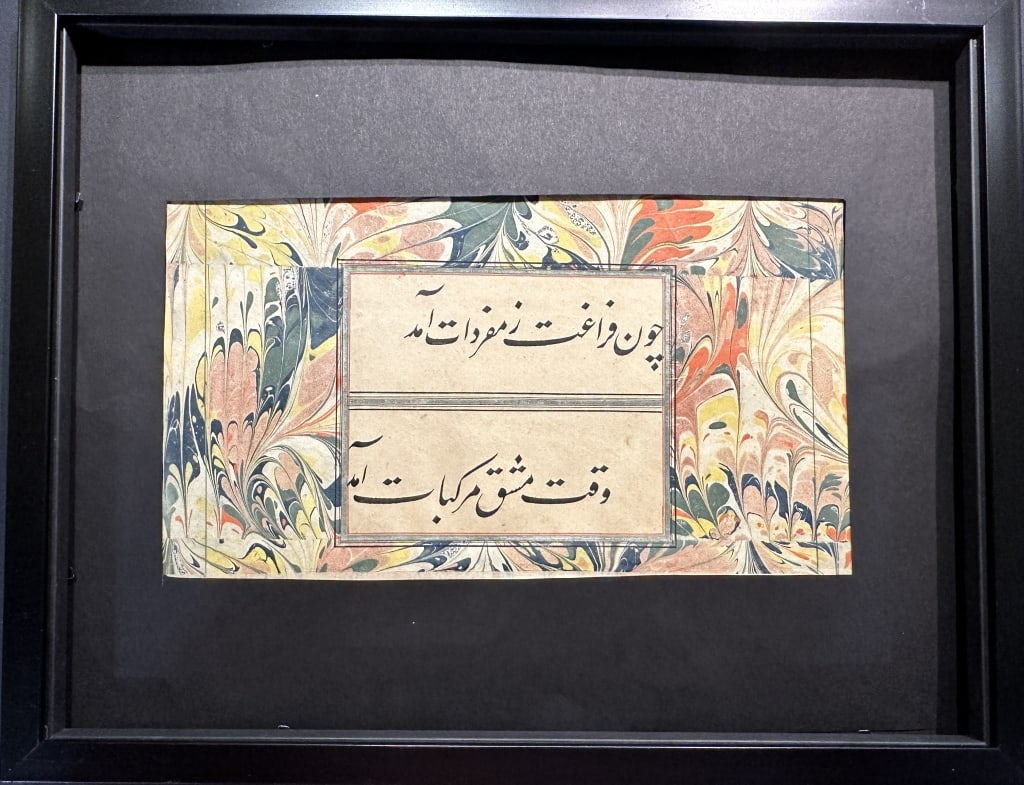 چون فراغت ز مفردات آمد
وقت مشق مرکبات آمد